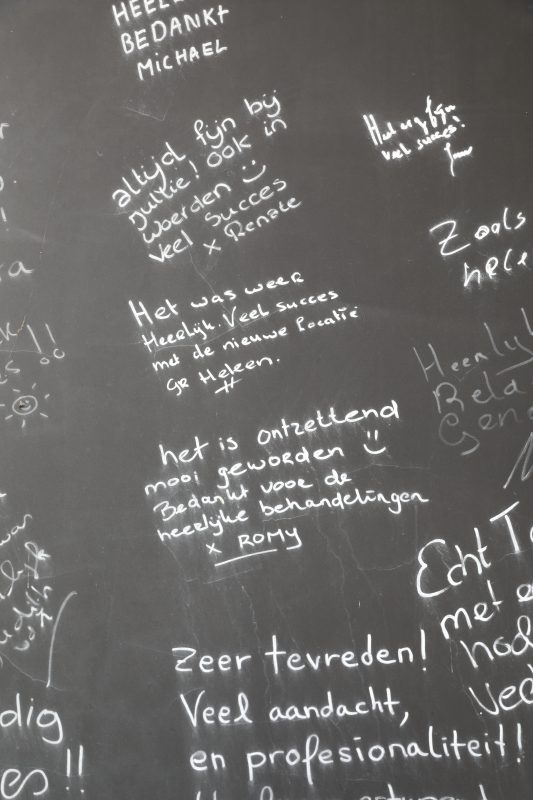 HEEL
BEDANKT
MICHAEL
altijd fijn bij
jullie! ook in
woerden :)
veel succes
x Renate
Heel erg fijn
veel succes!
Zoals
hele
Het was weer
Heerlijk. Veel succes
met de nieuwe locatie
gr Heleen.
Heerlijk
Rela
Gen
het is ontzettend
mooi geworden :)
Bedankt voor de
heerlijke behandelingen
x ROMY
Echt T
met e
nod
veel
Zeer tevreden!
Veel aandacht,
en profesionaliteit!
dig
es!!